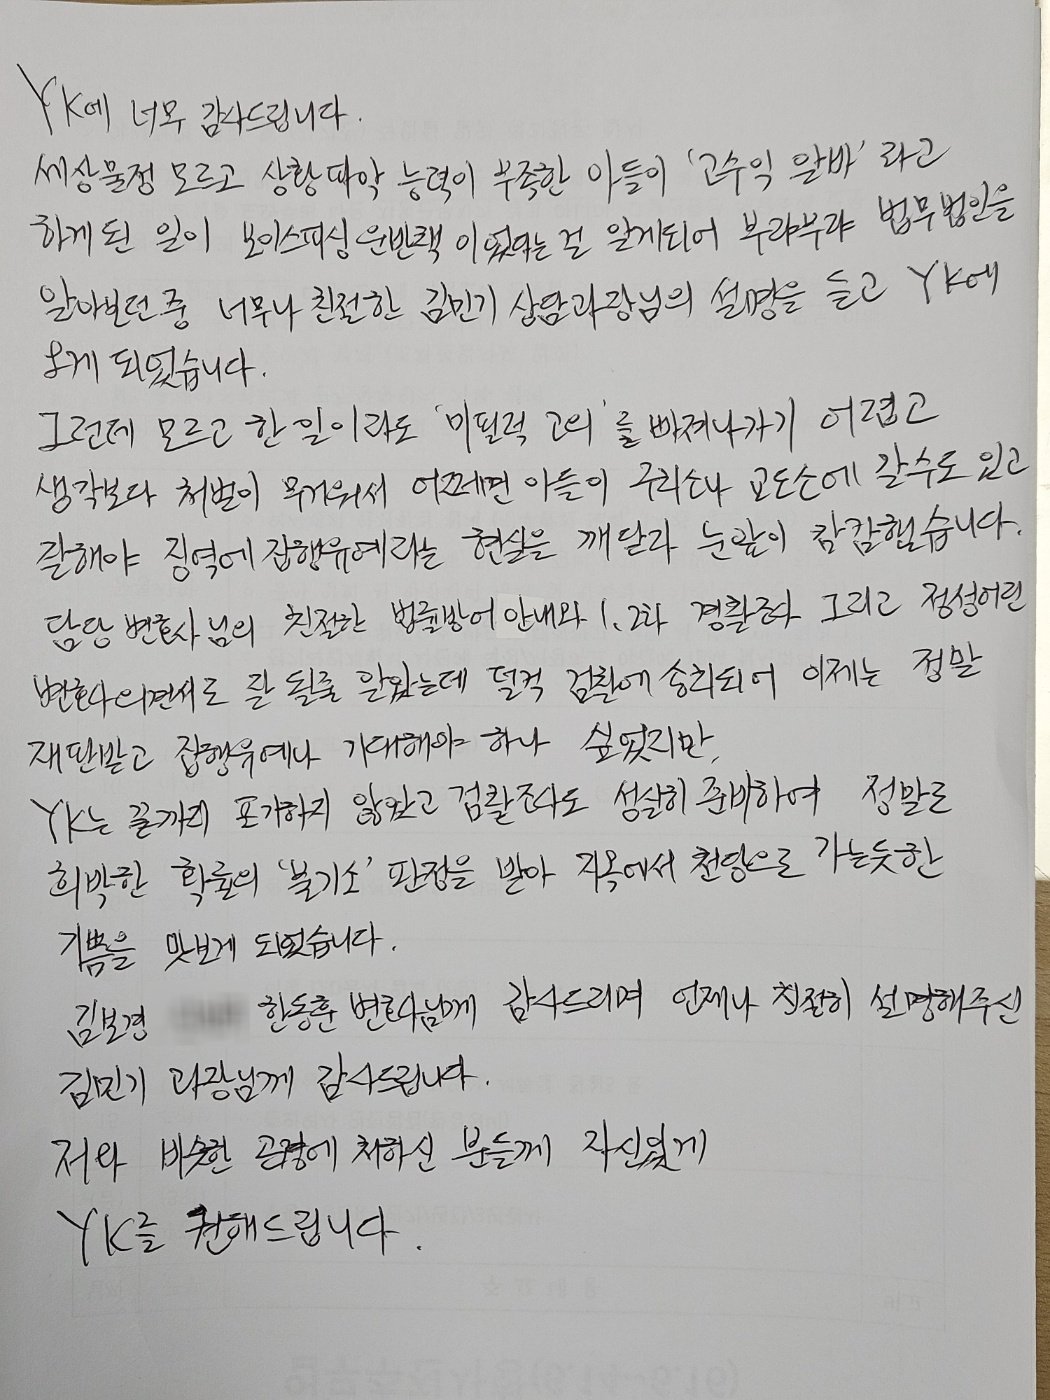 YK에 너무 감사드립니다.
세상물정 모르고 상황파악 능력이 부족한 아들이 '고수익 알바' 라고
하게 된 일이 보이스피싱 운반책 이었다는 걸 알게되어 부랴부랴 법무법인을
알아보던 중 너무나 친절한 김민기 상담과장님의 설명을 듣고 YK에
오게 되었습니다.
그런데 모르고 한 일이라도 '미필적 고의' 를 빠져나가기 어렵고
생각보다 처벌이 무거워서 어쩌면 아들이 구치소나 교도소에 갈수도 있고
잘해야 징역에 집행유예라는 현실을 깨달아 눈앞이 캄캄했습니다.
담당 변호사님의 친절한 법률방어 안내와 1, 2차 경찰조사 그리고 정성어린
변호사의견서로 잘 될줄 알았는데 덜컥 검찰에 송치되어 이제는 정말
재판받고 집행유예나 기대해야 하나 싶었지만,
YK는 끝까지 포기하지 않았고 검찰조사도 성실히 준비하여 정말로
희박한 확률의 '불기소' 판정을 받아 지옥에서 천당으로 가는듯한
기쁨을 맛보게 되었습니다.
김보경 한동훈 변호사님께 감사드리며 언제나 친절히 설명해주신
김민기 과장님께 감사드립니다.
저와 비슷한 곤경에 처하신 분들께 자신있게
YK를 권해드립니다.